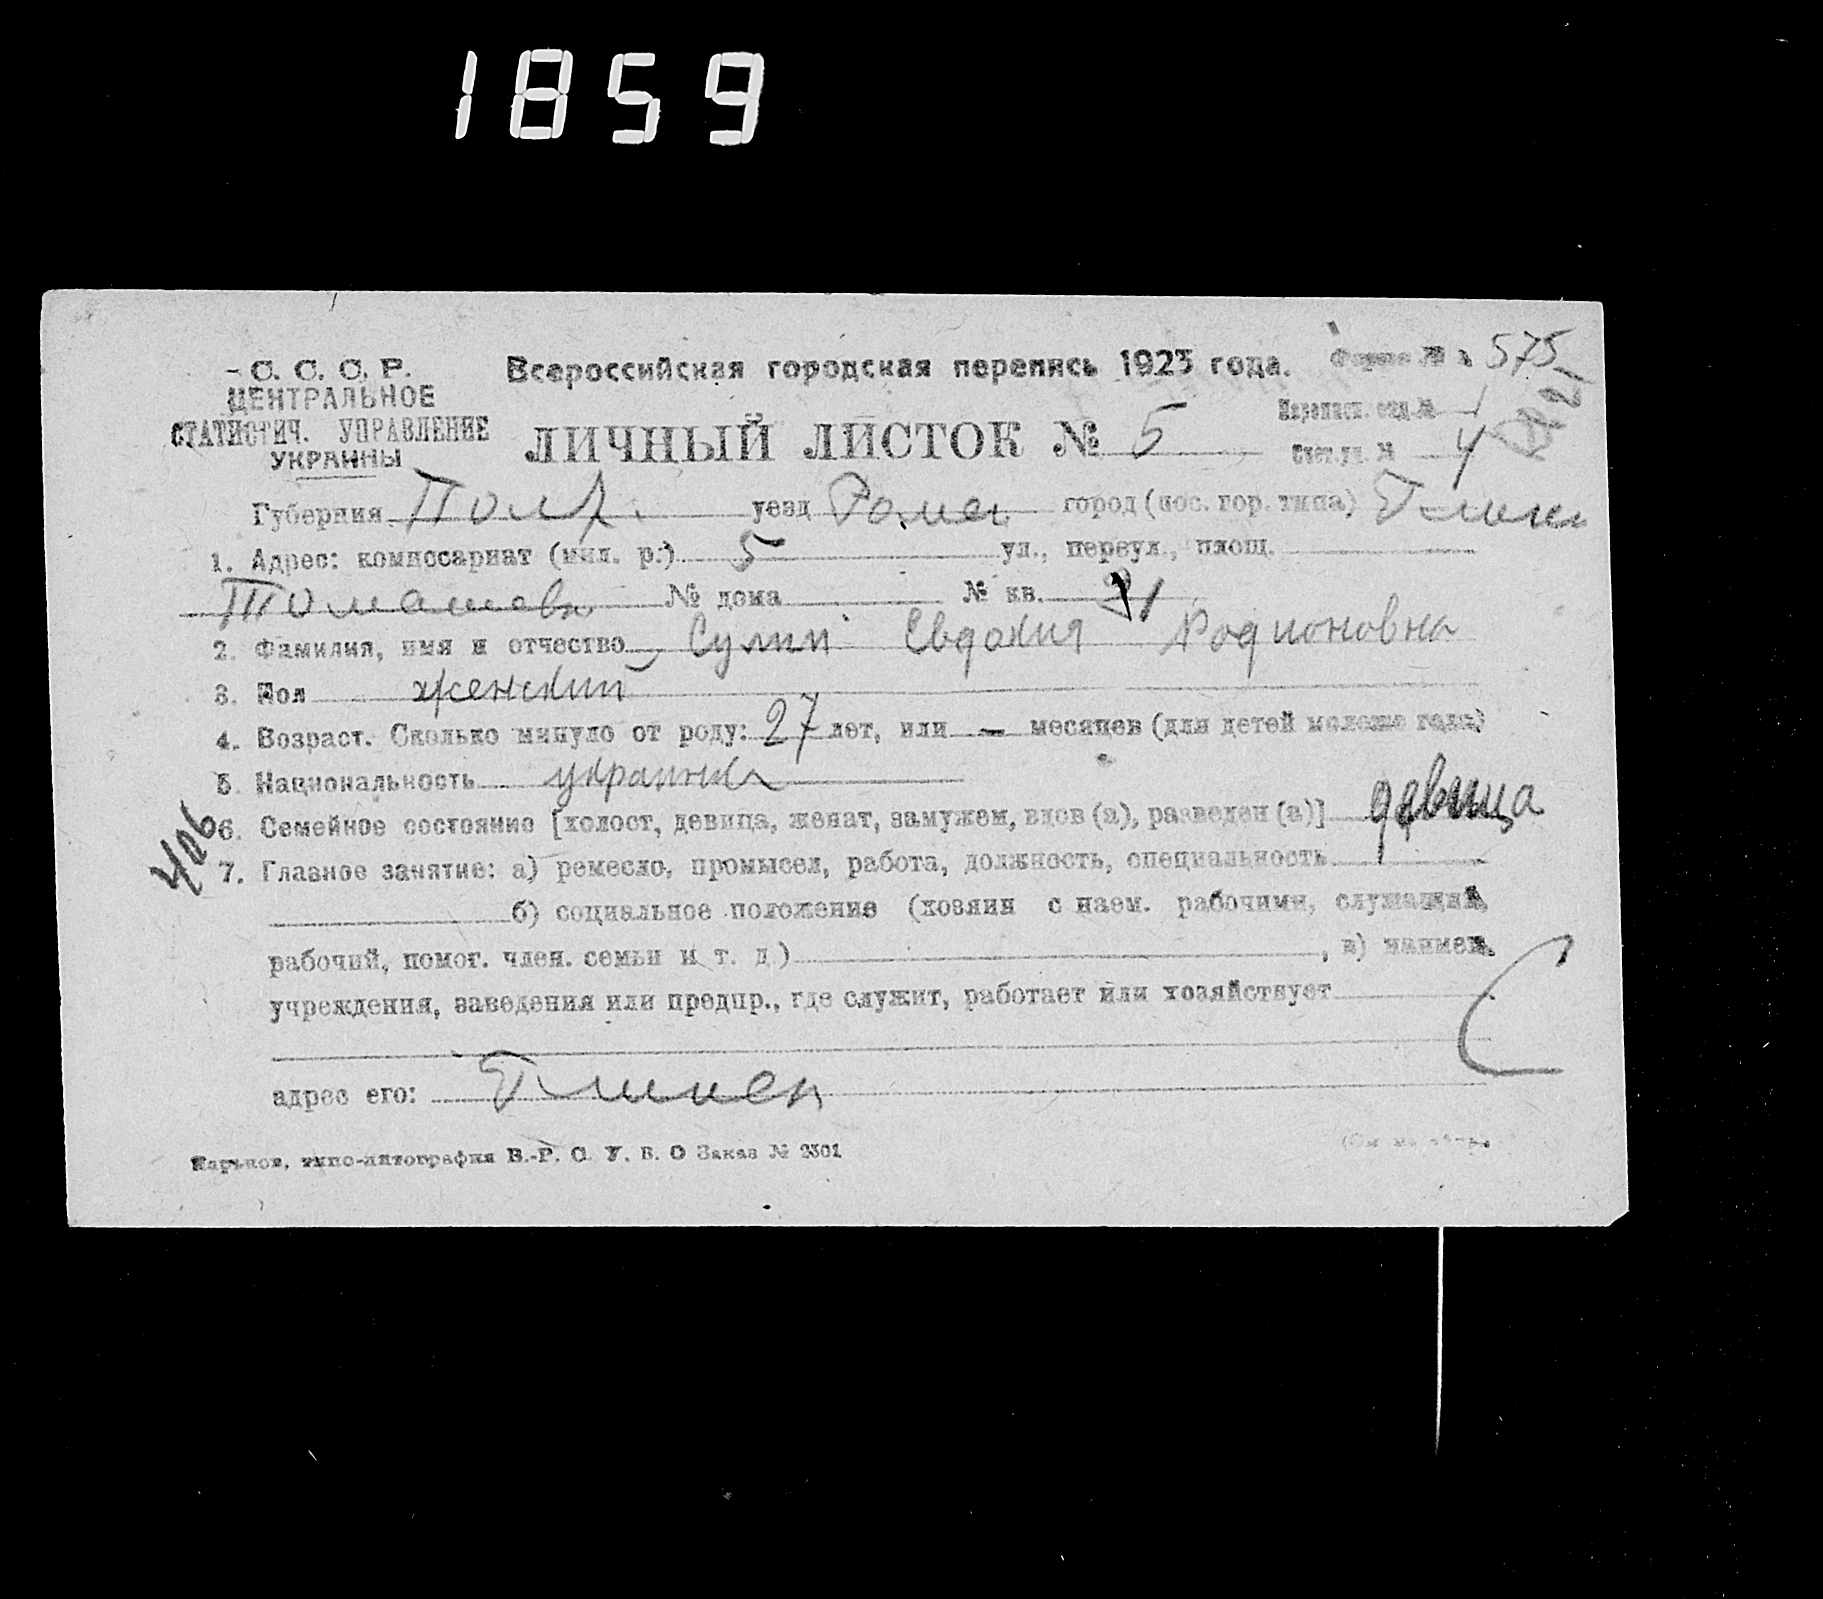 1859
С. С. С. Р.
ЦЕНТРАЛЬНОЕ
СТАТИСТИЧ. УПРАВЛЕНИЕ
УКРАИНЫ
Всероссийская городская перепись 1923 года.
Форма № 575
ЛИЧНЫЙ ЛИСТОК № 5
Переписн. отд. № 1
Счет. уч. № 4
Губерния Полт. уезд Ромен город (пос. гор. типа) Глинск
1. Адрес: комиссариат (мил. р.) 5 ул., переул., площ.
№ дома № кв. 21
2. Фамилия, имя и отчество Сулий Евдокия Родионовна
3. Пол женский
4. Возраст. Сколько минуло от роду: 27 лет, или — месяцев (для детей моложе года)
5. Национальность украинка
6. Семейное состояние [холост, девица, женат, замужем, вдов (а), разведен (а)] девица
7. Главное занятие: а) ремесло, промысел, работа, должность, специальность
б) социальное положение (хозяин с наем. рабочими, служащий,
рабочий, помог. член. семьи и т. д.) , в) наимен.
учреждения, заведения или предпр., где служит, работает или хозяйствует
адрес его: Глинск
Харьков, типо-литография В.-Р. С. У. В. О Заказ № 2301